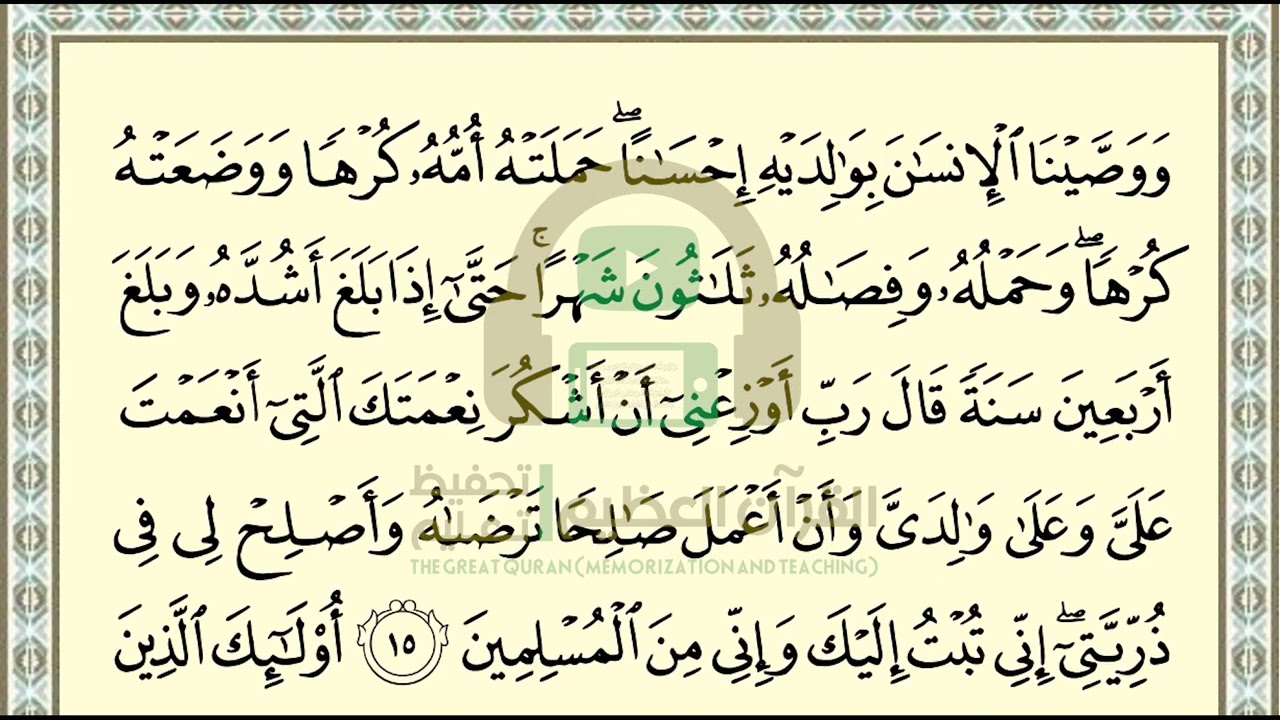 وَوَصَّيْنَا ٱلْإِنسَـٰنَ بِوَٰلِدَيْهِ إِحْسَـٰنًا ۖ حَمَلَتْهُ أُمُّهُۥ كُرْهًا وَوَضَعَتْهُ
كُرْهًا ۖ وَحَمْلُهُۥ وَفِصَـٰلُهُۥ ثَلَـٰثُونَ شَهْرًا ۚ حَتَّىٰٓ إِذَا بَلَغَ أَشُدَّهُۥ وَبَلَغَ
أَرْبَعِينَ سَنَةً قَالَ رَبِّ أَوْزِعْنِىٓ أَنْ أَشْكُرَ نِعْمَتَكَ ٱلَّتِىٓ أَنْعَمْتَ
القرآن العظيم تحفيظ
تعليم
عَلَىَّ وَعَلَىٰ وَٰلِدَىَّ وَأَنْ أَعْمَلَ صَـٰلِحًا تَرْضَىٰهُ وَأَصْلِحْ لِى فِى
THE GREAT QURAN (MEMORIZATION AND TEACHING)
ذُرِّيَّتِىٓ ۖ إِنِّى تُبْتُ إِلَيْكَ وَإِنِّى مِنَ ٱلْمُسْلِمِينَ ١٥ أُو۟لَـٰٓئِكَ ٱلَّذِينَ